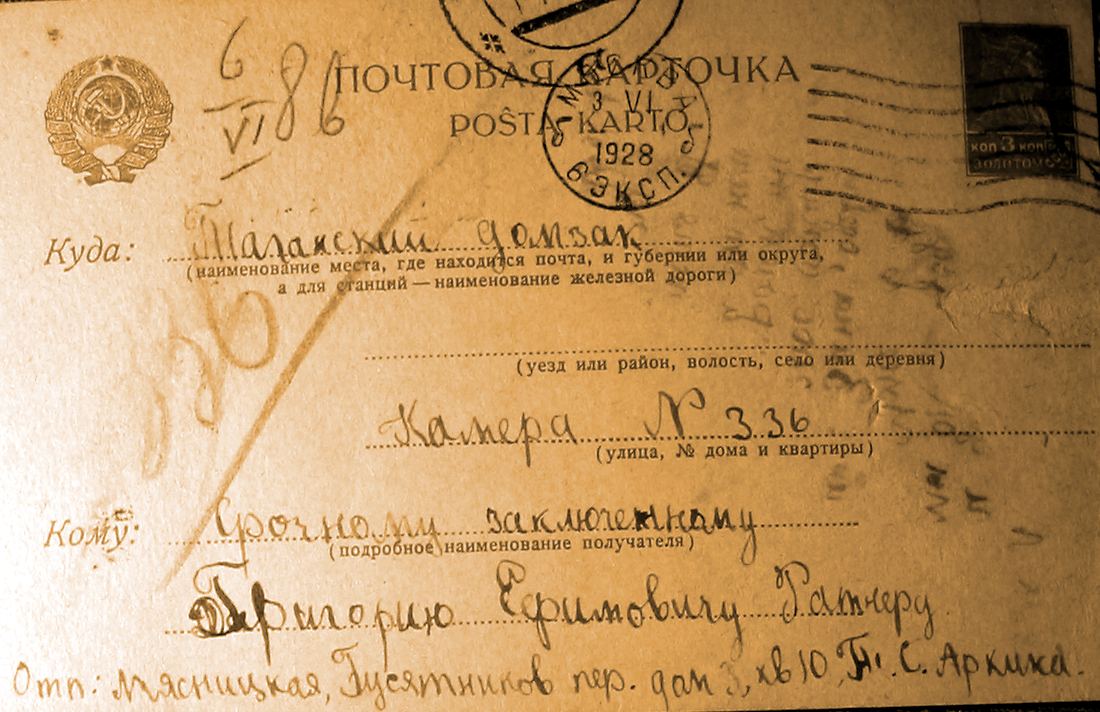 6
VI
86
ПОЧТОВАЯ КАРТОЧКА
POŜTA KARTO
МОСКВА
3 VI
1928
6 ЭКСП.
КОП 3 КОП
ЗОЛОТОМ
Куда: Таганский домзак
(наименование места, где находится почта, и губернии или округа,
а для станций — наименование железной дороги)
336
(уезд или район, волость, село или деревня)
Камера N 336
(улица, № дома и квартиры)
Кому: Срочному заключенному
(подробное наименование получателя)
Григорию Ефимовичу Ратнеру
Отп: Мясницкая, Гусятников пер. дом 3, кв 10, Т. С. Аркина.